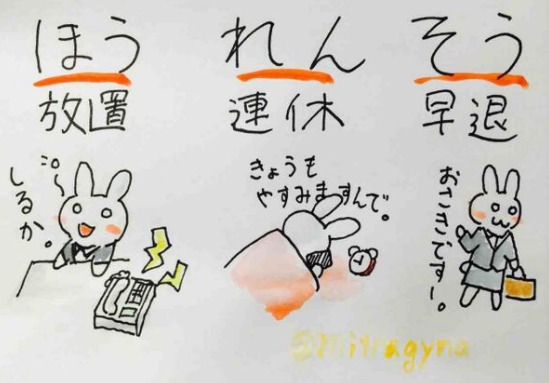 ほう れん そう
放置 連休 早退
しるか。
きょうも
やすみますんで。
おさきでーす。
@Mitragyna